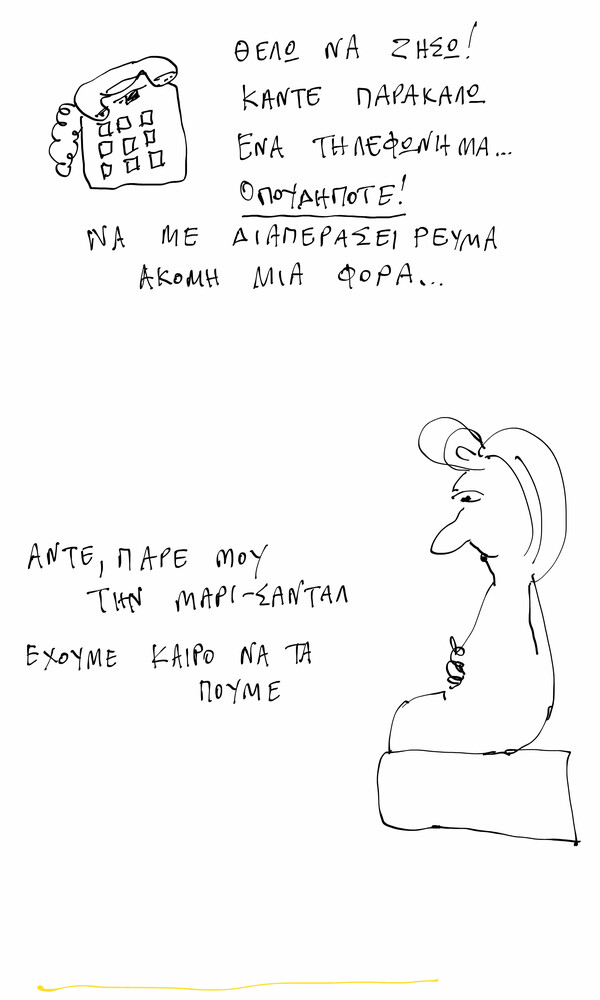 ΘΕΛΩ ΝΑ ΖΗΣΩ!
ΚΑΝΤΕ ΠΑΡΑΚΑΛΩ
ΕΝΑ ΤΗΛΕΦΩΝΗΜΑ...
ΟΠΟΥΔΗΠΟΤΕ!
ΝΑ ΜΕ ΔΙΑΠΕΡΑΣΕΙ ΡΕΥΜΑ
ΑΚΟΜΗ ΜΙΑ ΦΟΡΑ...
ΑΝΤΕ, ΠΑΡΕ ΜΟΥ
ΤΗΝ ΜΑΡΙ-ΣΑΝΤΑΛ
ΕΧΟΥΜΕ ΚΑΙΡΟ ΝΑ ΤΑ
ΠΟΥΜΕ